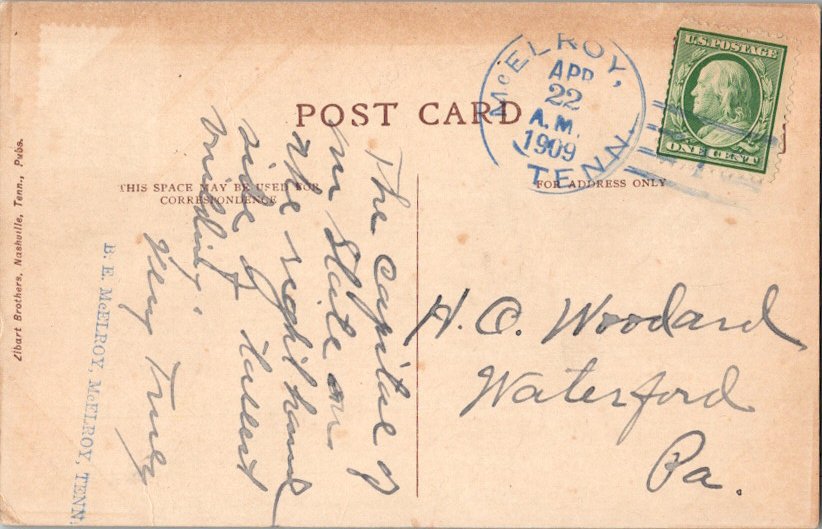 POST CARD
THIS SPACE MAY BE USED FOR
CORRESPONDENCE
FOR ADDRESS ONLY
McELROY,
APR
22
A.M.
1909
TENN.
U.S. POSTAGE
ONE CENT
The capital of
State on
the right hand
side of
building,
Very Truly
B. E. McELROY, McELROY, TENN.
H. C. Woodard
Waterford
Pa.
Zibart Brothers, Nashville, Tenn., Pubs.